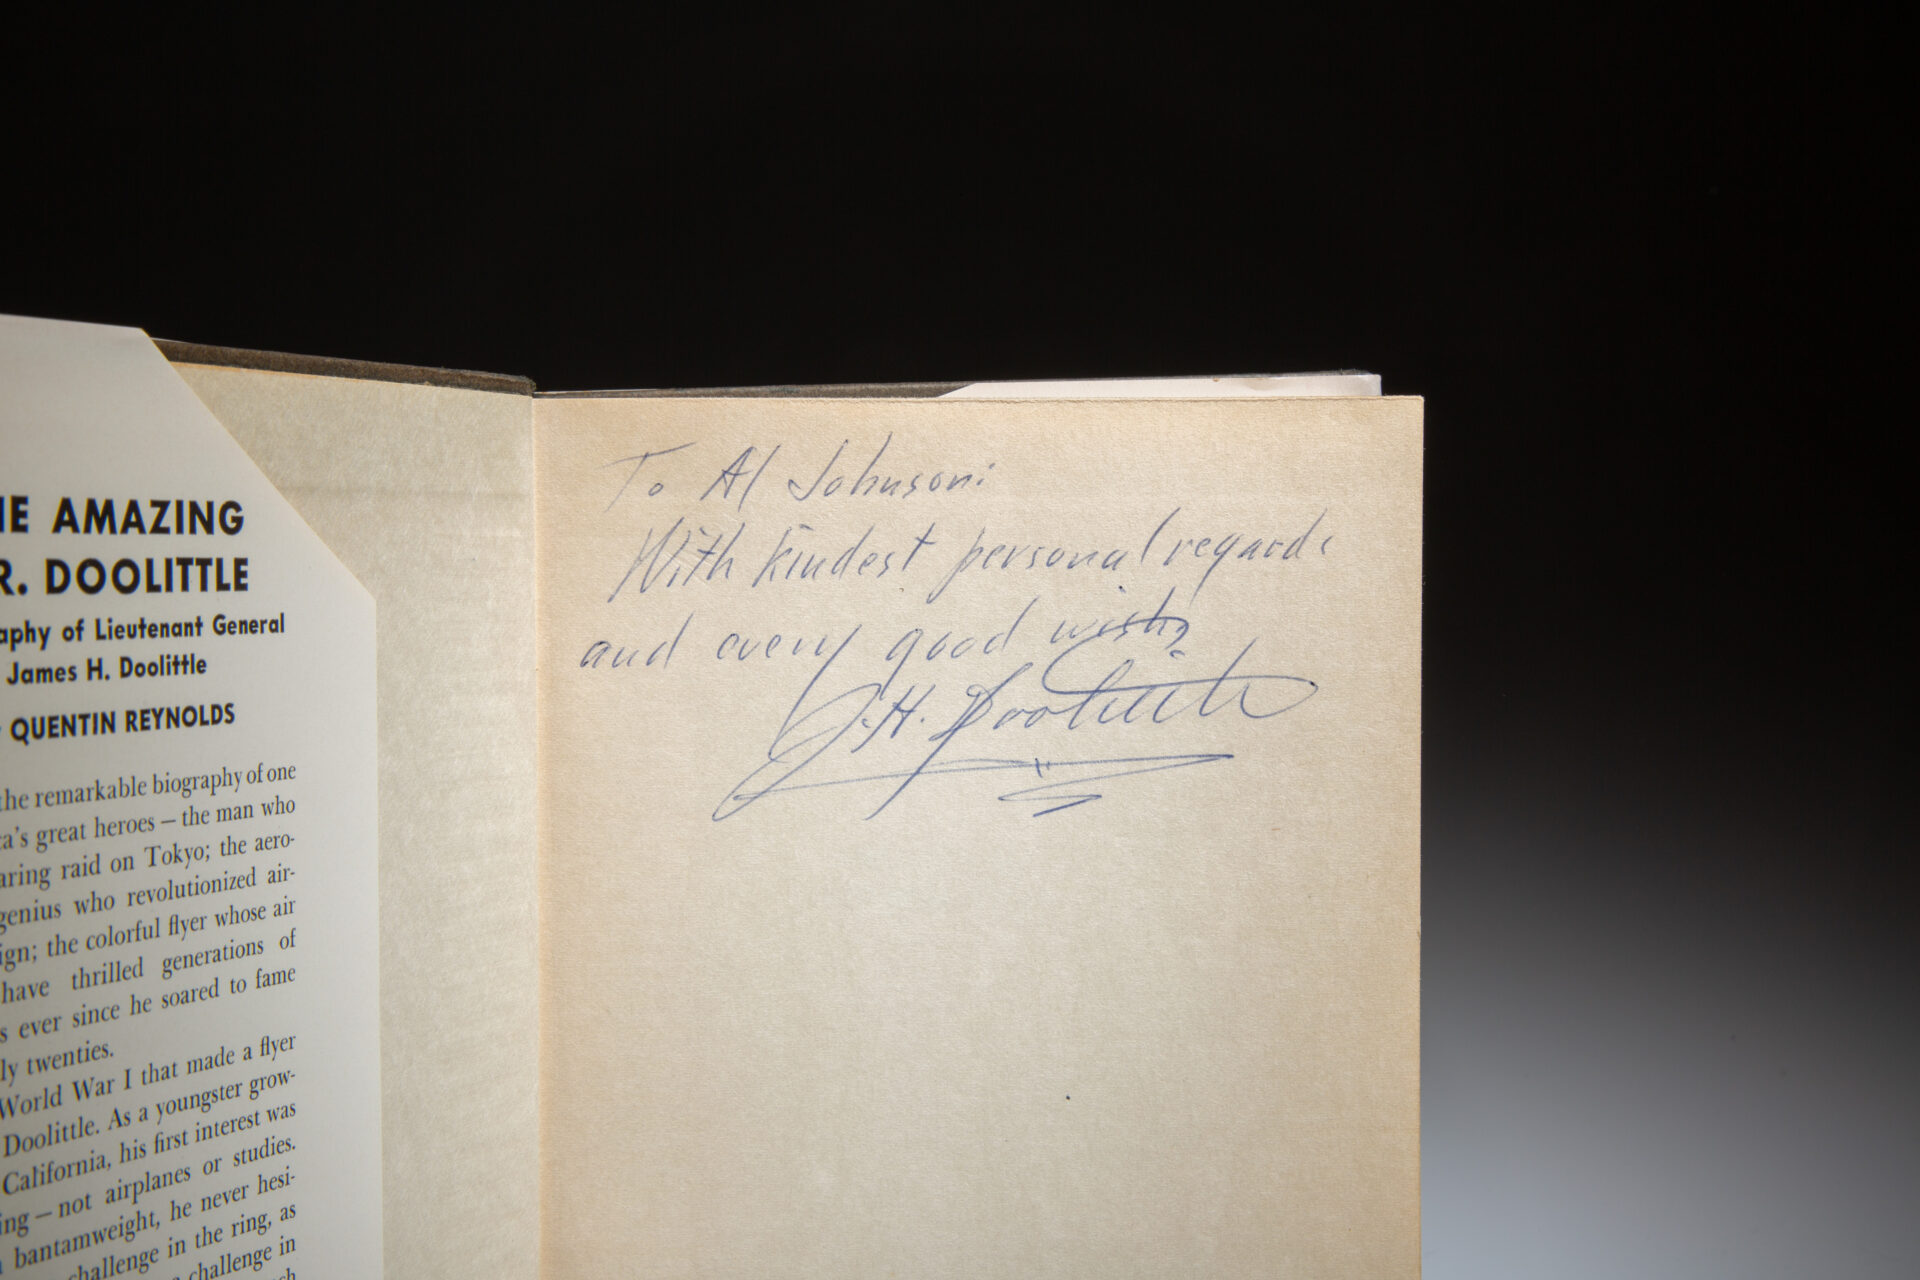 HE AMAZING
R. DOOLITTLE
aphy of Lieutenant General
James H. Doolittle
QUENTIN REYNOLDS
the remarkable biography of one
ca's great heroes – the man who
aring raid on Tokyo; the aero-
genius who revolutionized air-
ign; the colorful flyer whose air
have thrilled generations of
s ever since he soared to fame
ly twenties.
World War I that made a flyer
Doolittle. As a youngster grow-
California, his first interest was
ing – not airplanes or studies.
bantamweight, he never hesi-
challenge in the ring, as
challenge in
To Al Johnson:
With kindest personal regards
and every good wish
J. H. Doolittle